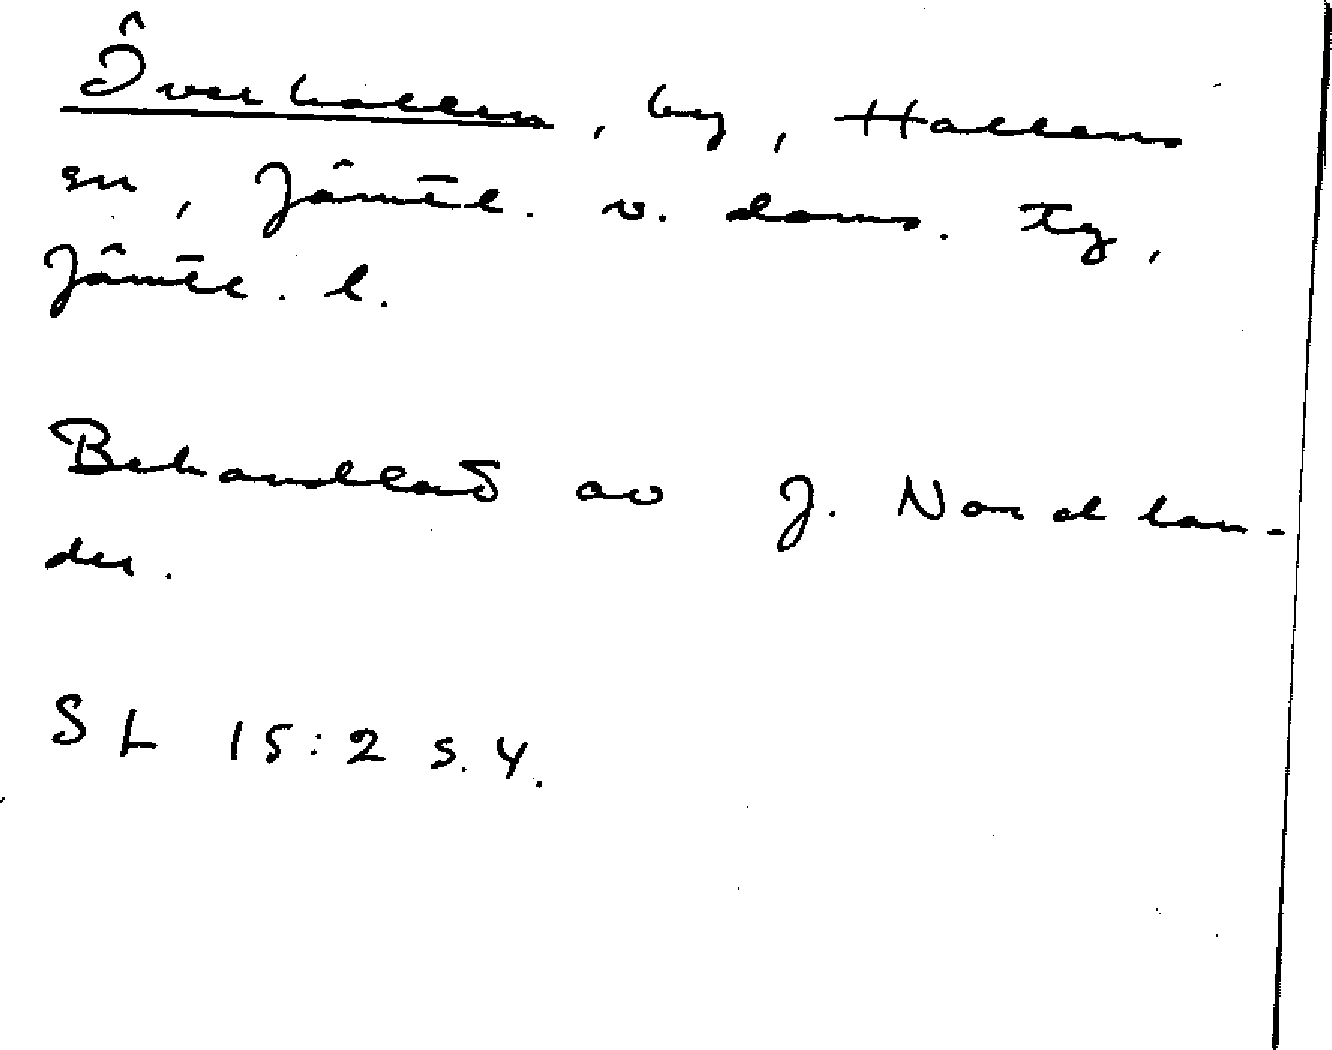 Överhallen, by, Hallens
sn, Jämtl. v. doms. tg,
Jämtl. l.
Behandlad av J. Nordlan-
der.
SL 15:2 s. 4.